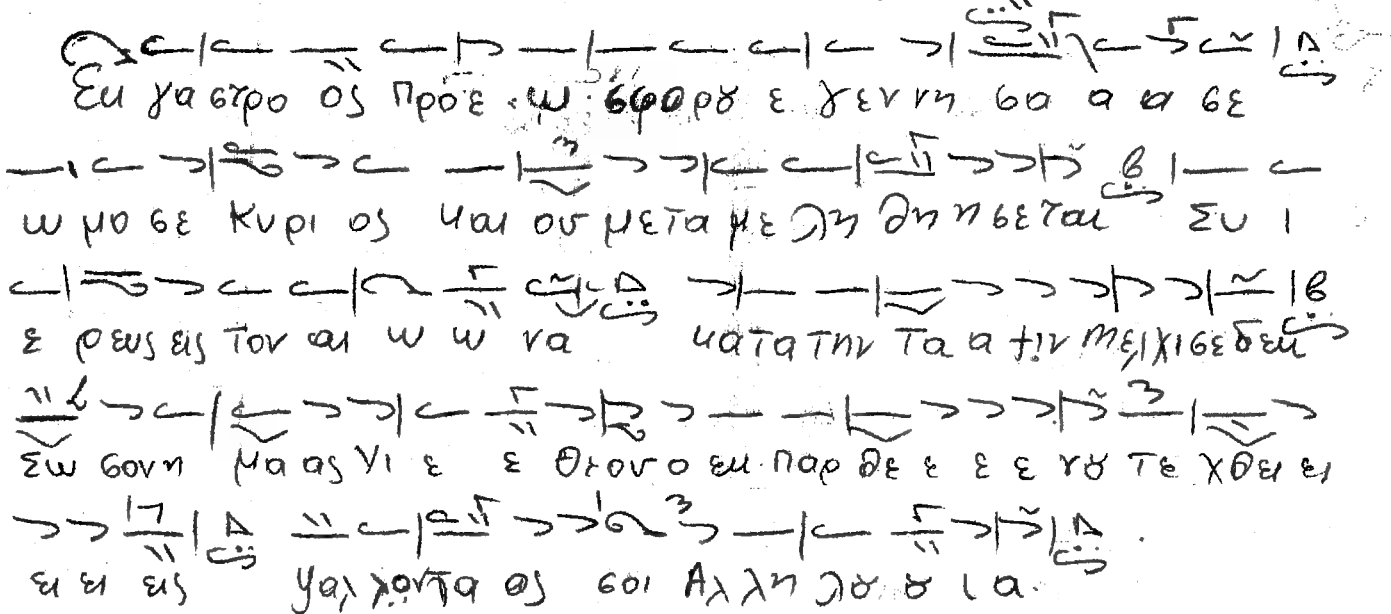 Εκ γα στρο ος προ ε ω σφο ρȣ ε γεν νη σα α α σε
ω μο σε Κυ ρι ος και ου με τα με λη θη η σε ται Συ ι
ε ρευς εις τον αι ω ω να κα τα την τα α ξιν Μελχισεδεκ
Σω σον η μα ας Υι ε ε Θε ου ο εκ παρ θε ε ε ε νȣ τε χθει ει
ει ει εις ψαλ λον τα ας σοι Αλ λη λȣ ȣ ι α.